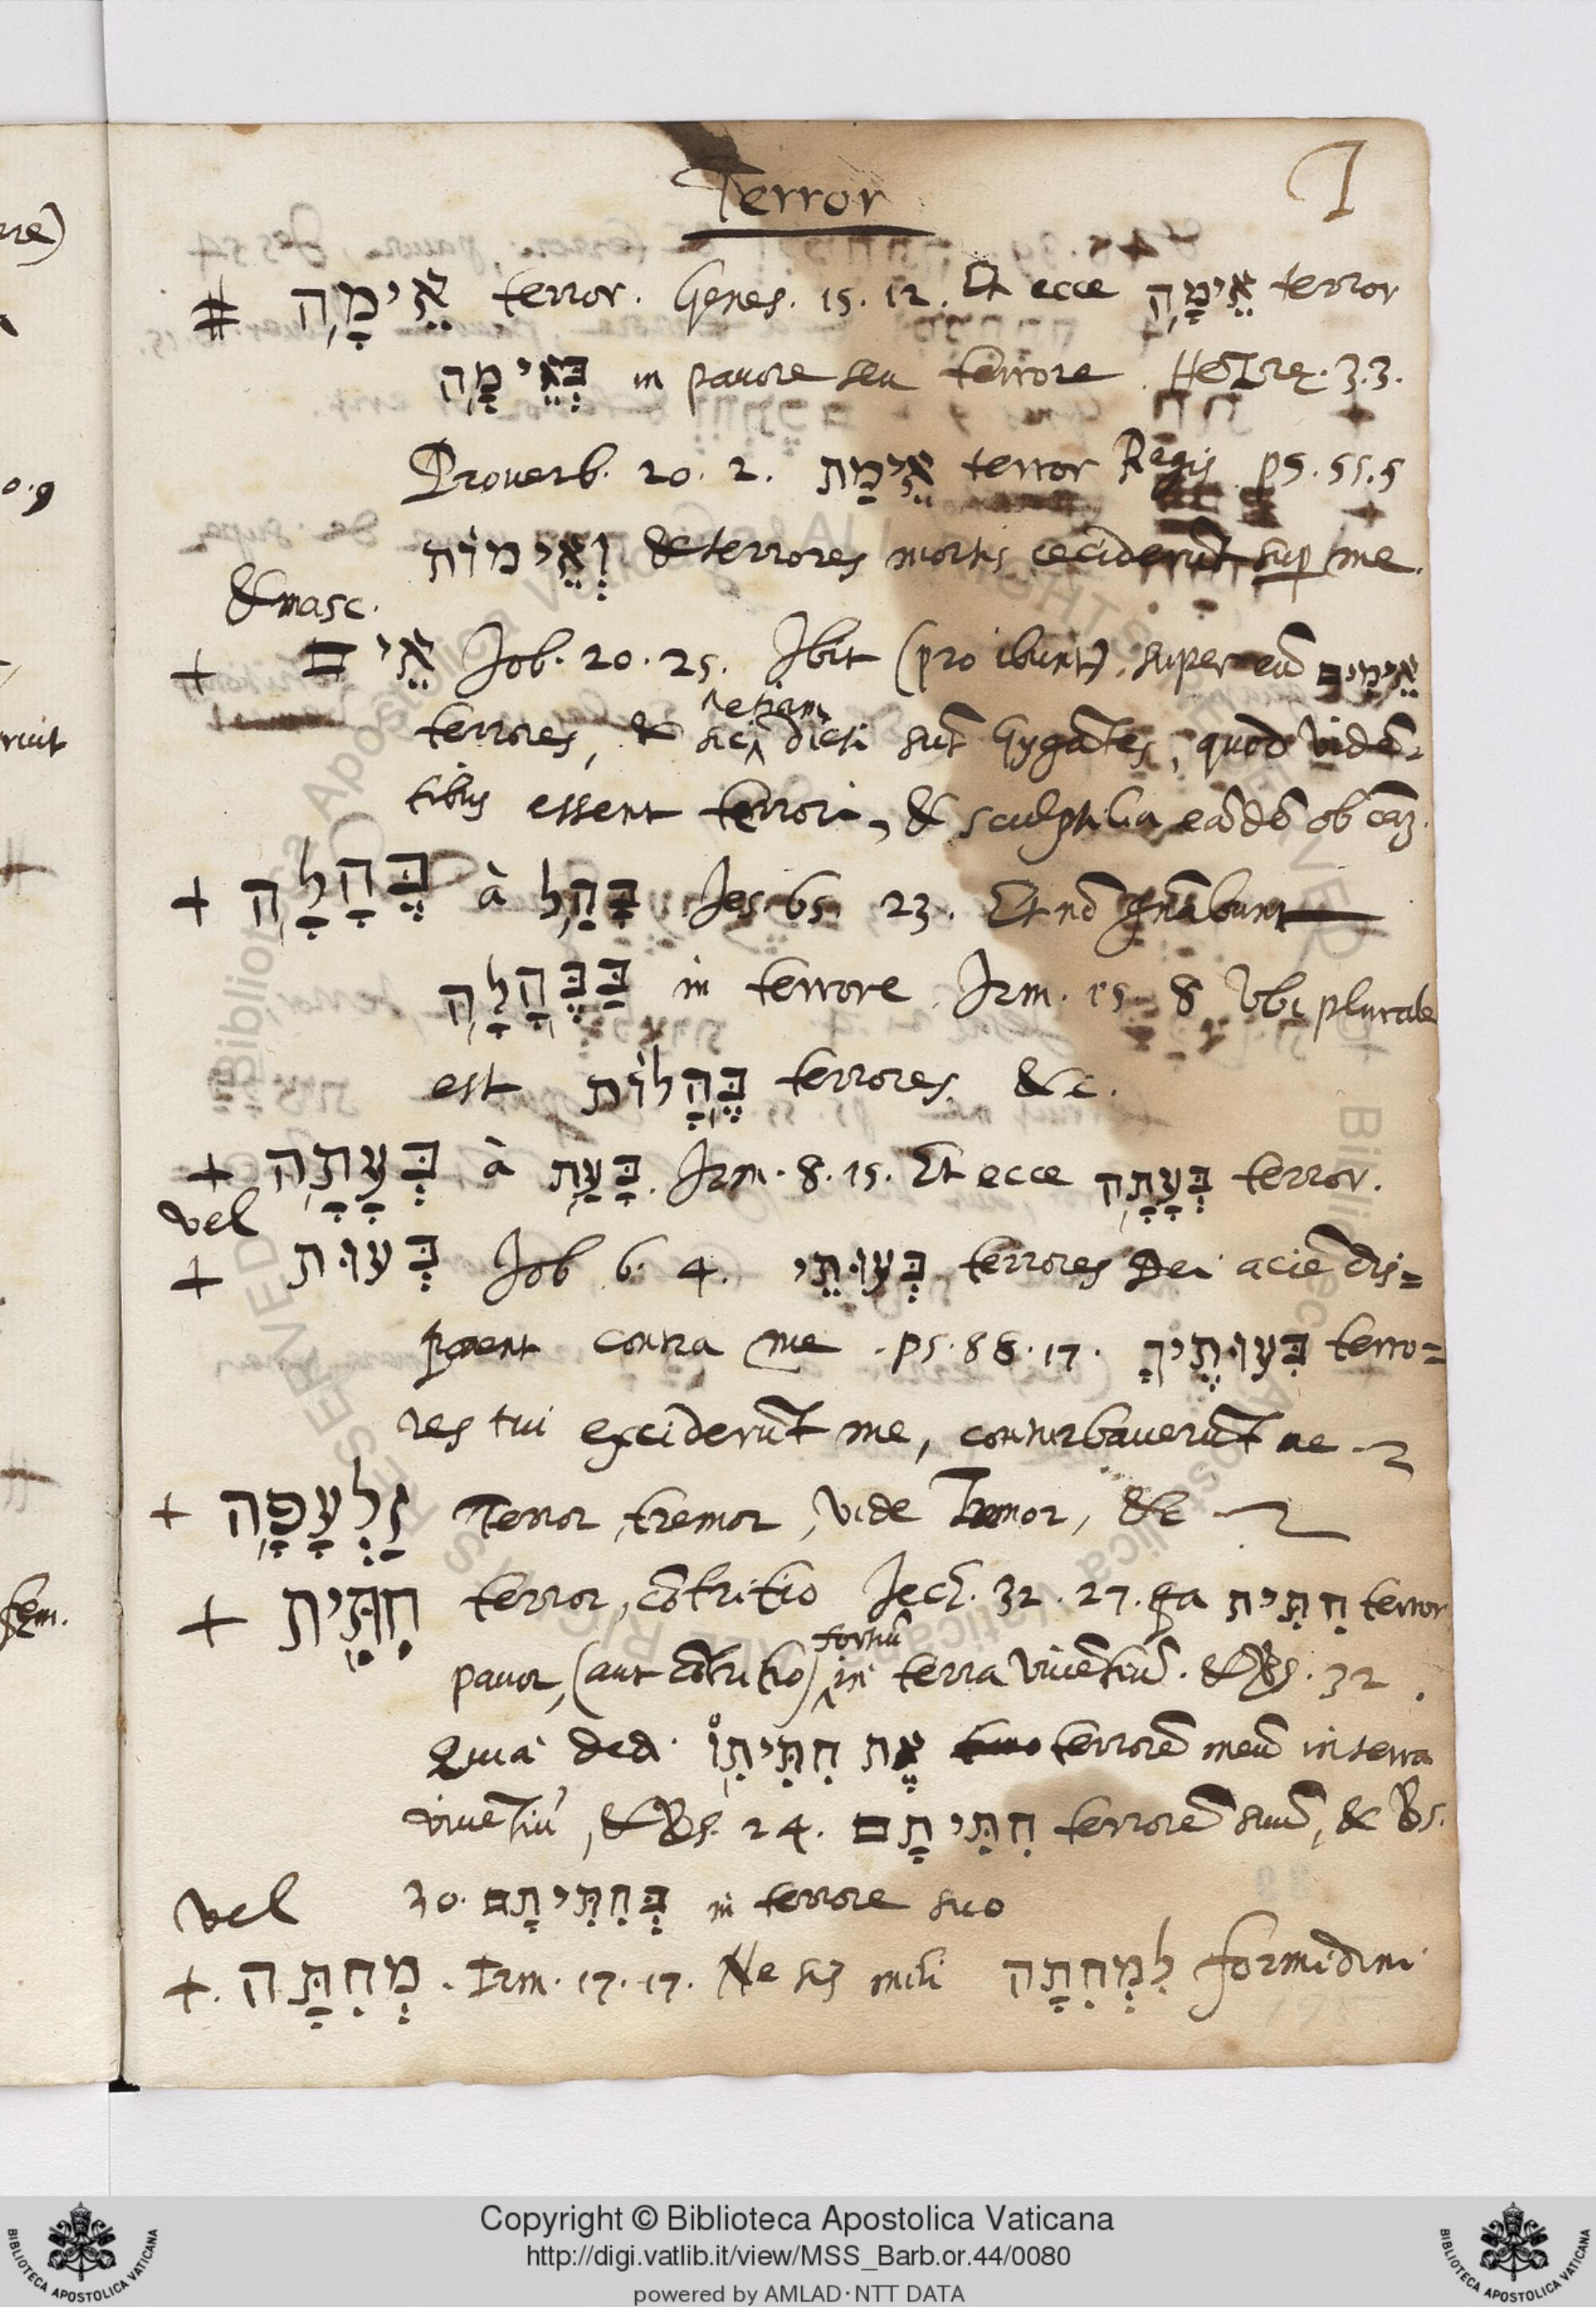 T
Terror
# אֵימָה terror. Genes. 15. 12. Et ecce אֵימָה terror
בְּאֵימָה in pauore seu terrore. 3.3.
Prouerb. 20. 2. אֵימַת terror Regis ps. 55.5
וְאֵימוֹת & terrores mortis ceciderūt sup me.
& masc.
+ אֵים Job. 20. 25. Ibit (pro ibunt) super eū אֵימִים
terrores, & sic etiam dicti sūt Gygātes, quod vidē-
tibus essent terrori, & sculptilia eādē ob
+ בֶּהָלָה à בָּהַל Jes. 65. 23. Et nō gn̄abunt
בַּבֶּהָלָה in terrore. Irm. 15. 8 Vbi plurale
est בֶּהָלוֹת terrores. &c.
+ בְּעָתָה à בָּעַת. Irm. 8. 15. Et ecce בְּעָתָה terror.
vel
+ בְּעוּת Job 6. 4. בְּעוּתֵי terrores Dei aciē dis=
ponent contra me. ps. 88. 17. בִּעוּתֶיךָ terro=
res tui exciderūt me, conturbauerūt me
+ זַלְעָפָה Terror, tremor, vide Tremor, &c
+ חִתִּית terror, cōtritio Jech. 32. 27. qa חִתִּית terror
pauor, (aut cōtritio) fortiū in terra viuētiū. & Vs. 32.
Quia ded. אֶת חִתִּיתוֹ terrorē meū in terra
viuētiū, & Vs. 24. חִתִּיתָם terrorē suū, & Vs.
30. בְּחִתִּיתָם in terrore suo
vel
+. מְחִתָּה. Irm. 17. 17. Ne sis mihi לִמְחִתָּה formidini
Copyright © Biblioteca Apostolica Vaticana
http://digi.vatlib.it/view/MSS_Barb.or.44/0080
powered by AMLAD·NTT DATA
BIBLIOTECA APOSTOLICA VATICANA
BIBLIOTECA APOSTOLICA VATICANA